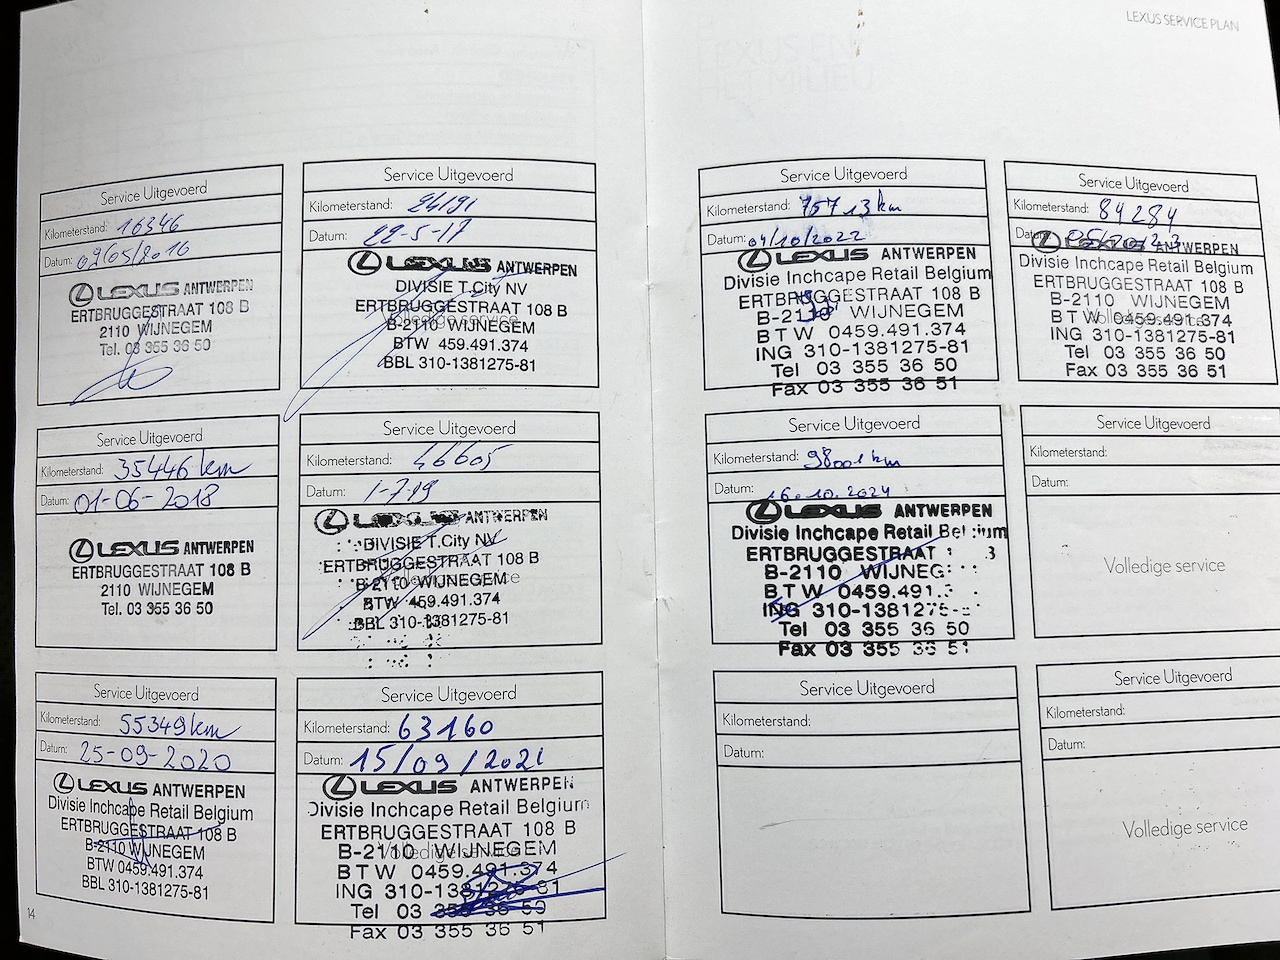 LEXUS SERVICE PLAN
Service Uitgevoerd
Kilometerstand: 16346
Datum: 09/05/2016
LEXUS ANTWERPEN
ERTBRUGGESTRAAT 108 B
2110 WIJNEGEM
Tel. 03 355 36 50
Service Uitgevoerd
Kilometerstand: 24191
Datum: 22-5-17
LEXUS ANTWERPEN
DIVISIE T.City NV
ERTBRUGGESTRAAT 108 B
Volledige service
B-2110 WIJNEGEM
BTW 459.491.374
BBL 310-1381275-81
Service Uitgevoerd
Kilometerstand: 35446 km
Datum: 01-06-2018
LEXUS ANTWERPEN
ERTBRUGGESTRAAT 108 B
2110 WIJNEGEM
Tel. 03 355 36 50
Service Uitgevoerd
Kilometerstand: 46605
Datum: 1-7-19
LEXUS ANTWERPEN
DIVISIE T.City NV
ERTBRUGGESTRAAT 108 B
B-2110 WIJNEGEM
Volledige service
BTW 459.491.374
BBL 310-1381275-81
Service Uitgevoerd
Kilometerstand: 55349 km
Datum: 25-09-2020
LEXUS ANTWERPEN
Divisie Inchcape Retail Belgium
ERTBRUGGESTRAAT 108 B
B-2110 WIJNEGEM
BTW 0459.491.374
BBL 310-1381275-81
Service Uitgevoerd
Kilometerstand: 63160
Datum: 15/09/2021
LEXUS ANTWERPEN
Divisie Inchcape Retail Belgium
ERTBRUGGESTRAAT 108 B
B-2110 WIJNEGEM
Volledige service
BTW 0459.491.374
ING 310-1381275-81
Tel 03 355 36 50
Fax 03 355 36 51
14
Service Uitgevoerd
Kilometerstand: 75713 km
Datum: 04/10/2022
LEXUS ANTWERPEN
Divisie Inchcape Retail Belgium
ERTBRUGGESTRAAT 108 B
B-2110 WIJNEGEM
BTW 0459.491.374
ING 310-1381275-81
Tel 03 355 36 50
Fax 03 355 36 51
Service Uitgevoerd
Kilometerstand: 84284
Datum:
LEXUS ANTWERPEN
Divisie Inchcape Retail Belgium
ERTBRUGGESTRAAT 108 B
B-2110 WIJNEGEM
BTW 0459.491.374
Volledige service
ING 310-1381275-81
Tel 03 355 36 50
Fax 03 355 36 51
Service Uitgevoerd
Kilometerstand: 98001 km
Datum: 16.10.2024
LEXUS ANTWERPEN
Divisie Inchcape Retail Belgium
ERTBRUGGESTRAAT
B-2110 WIJNEG
BTW 0459.491.
ING 310-1381275-
Tel 03 355 36 50
Fax 03 355 36 51
Service Uitgevoerd
Kilometerstand:
Datum:
Volledige service
Service Uitgevoerd
Kilometerstand:
Datum:
Service Uitgevoerd
Kilometerstand:
Datum:
Volledige service